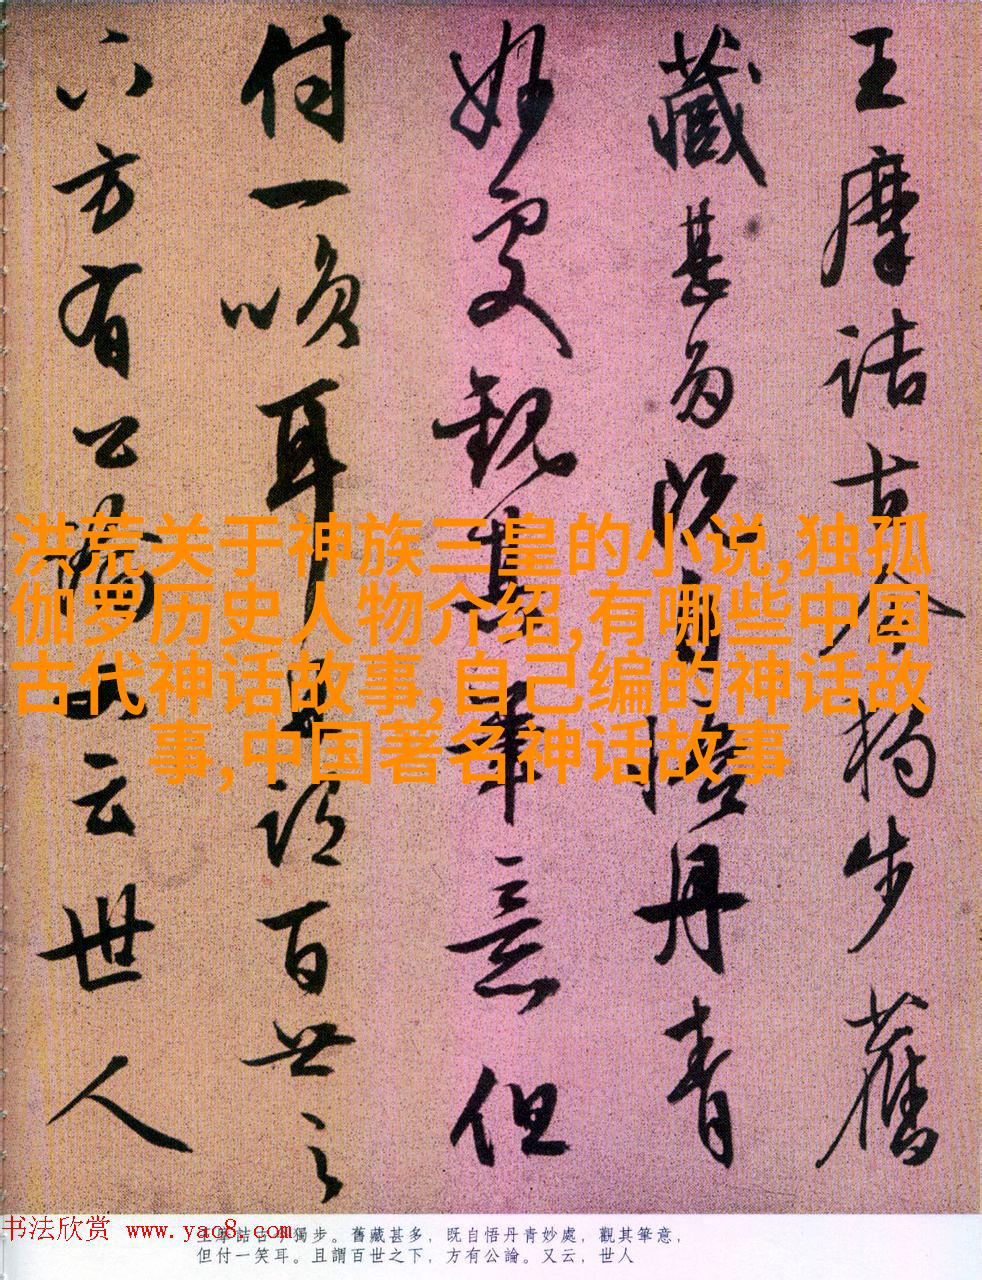 王摩詰古今獨步舊
藏甚多既自悟丹青
妙處觀其筆意但
付一咲耳且謂百世之
下方有公論又云世人
洪荒关于神族三皇的小说,独孤
伽罗历史人物介绍,有哪些中国
古代神话故事,自己编的神话故
事,中国著名神话故事
书法欣赏 www.yac8.com
王摩詰古今獨步。舊藏甚多，既自悟丹青妙處，觀其筆意，
但付一笑耳。且謂百世之下，方有公論。又云，世人